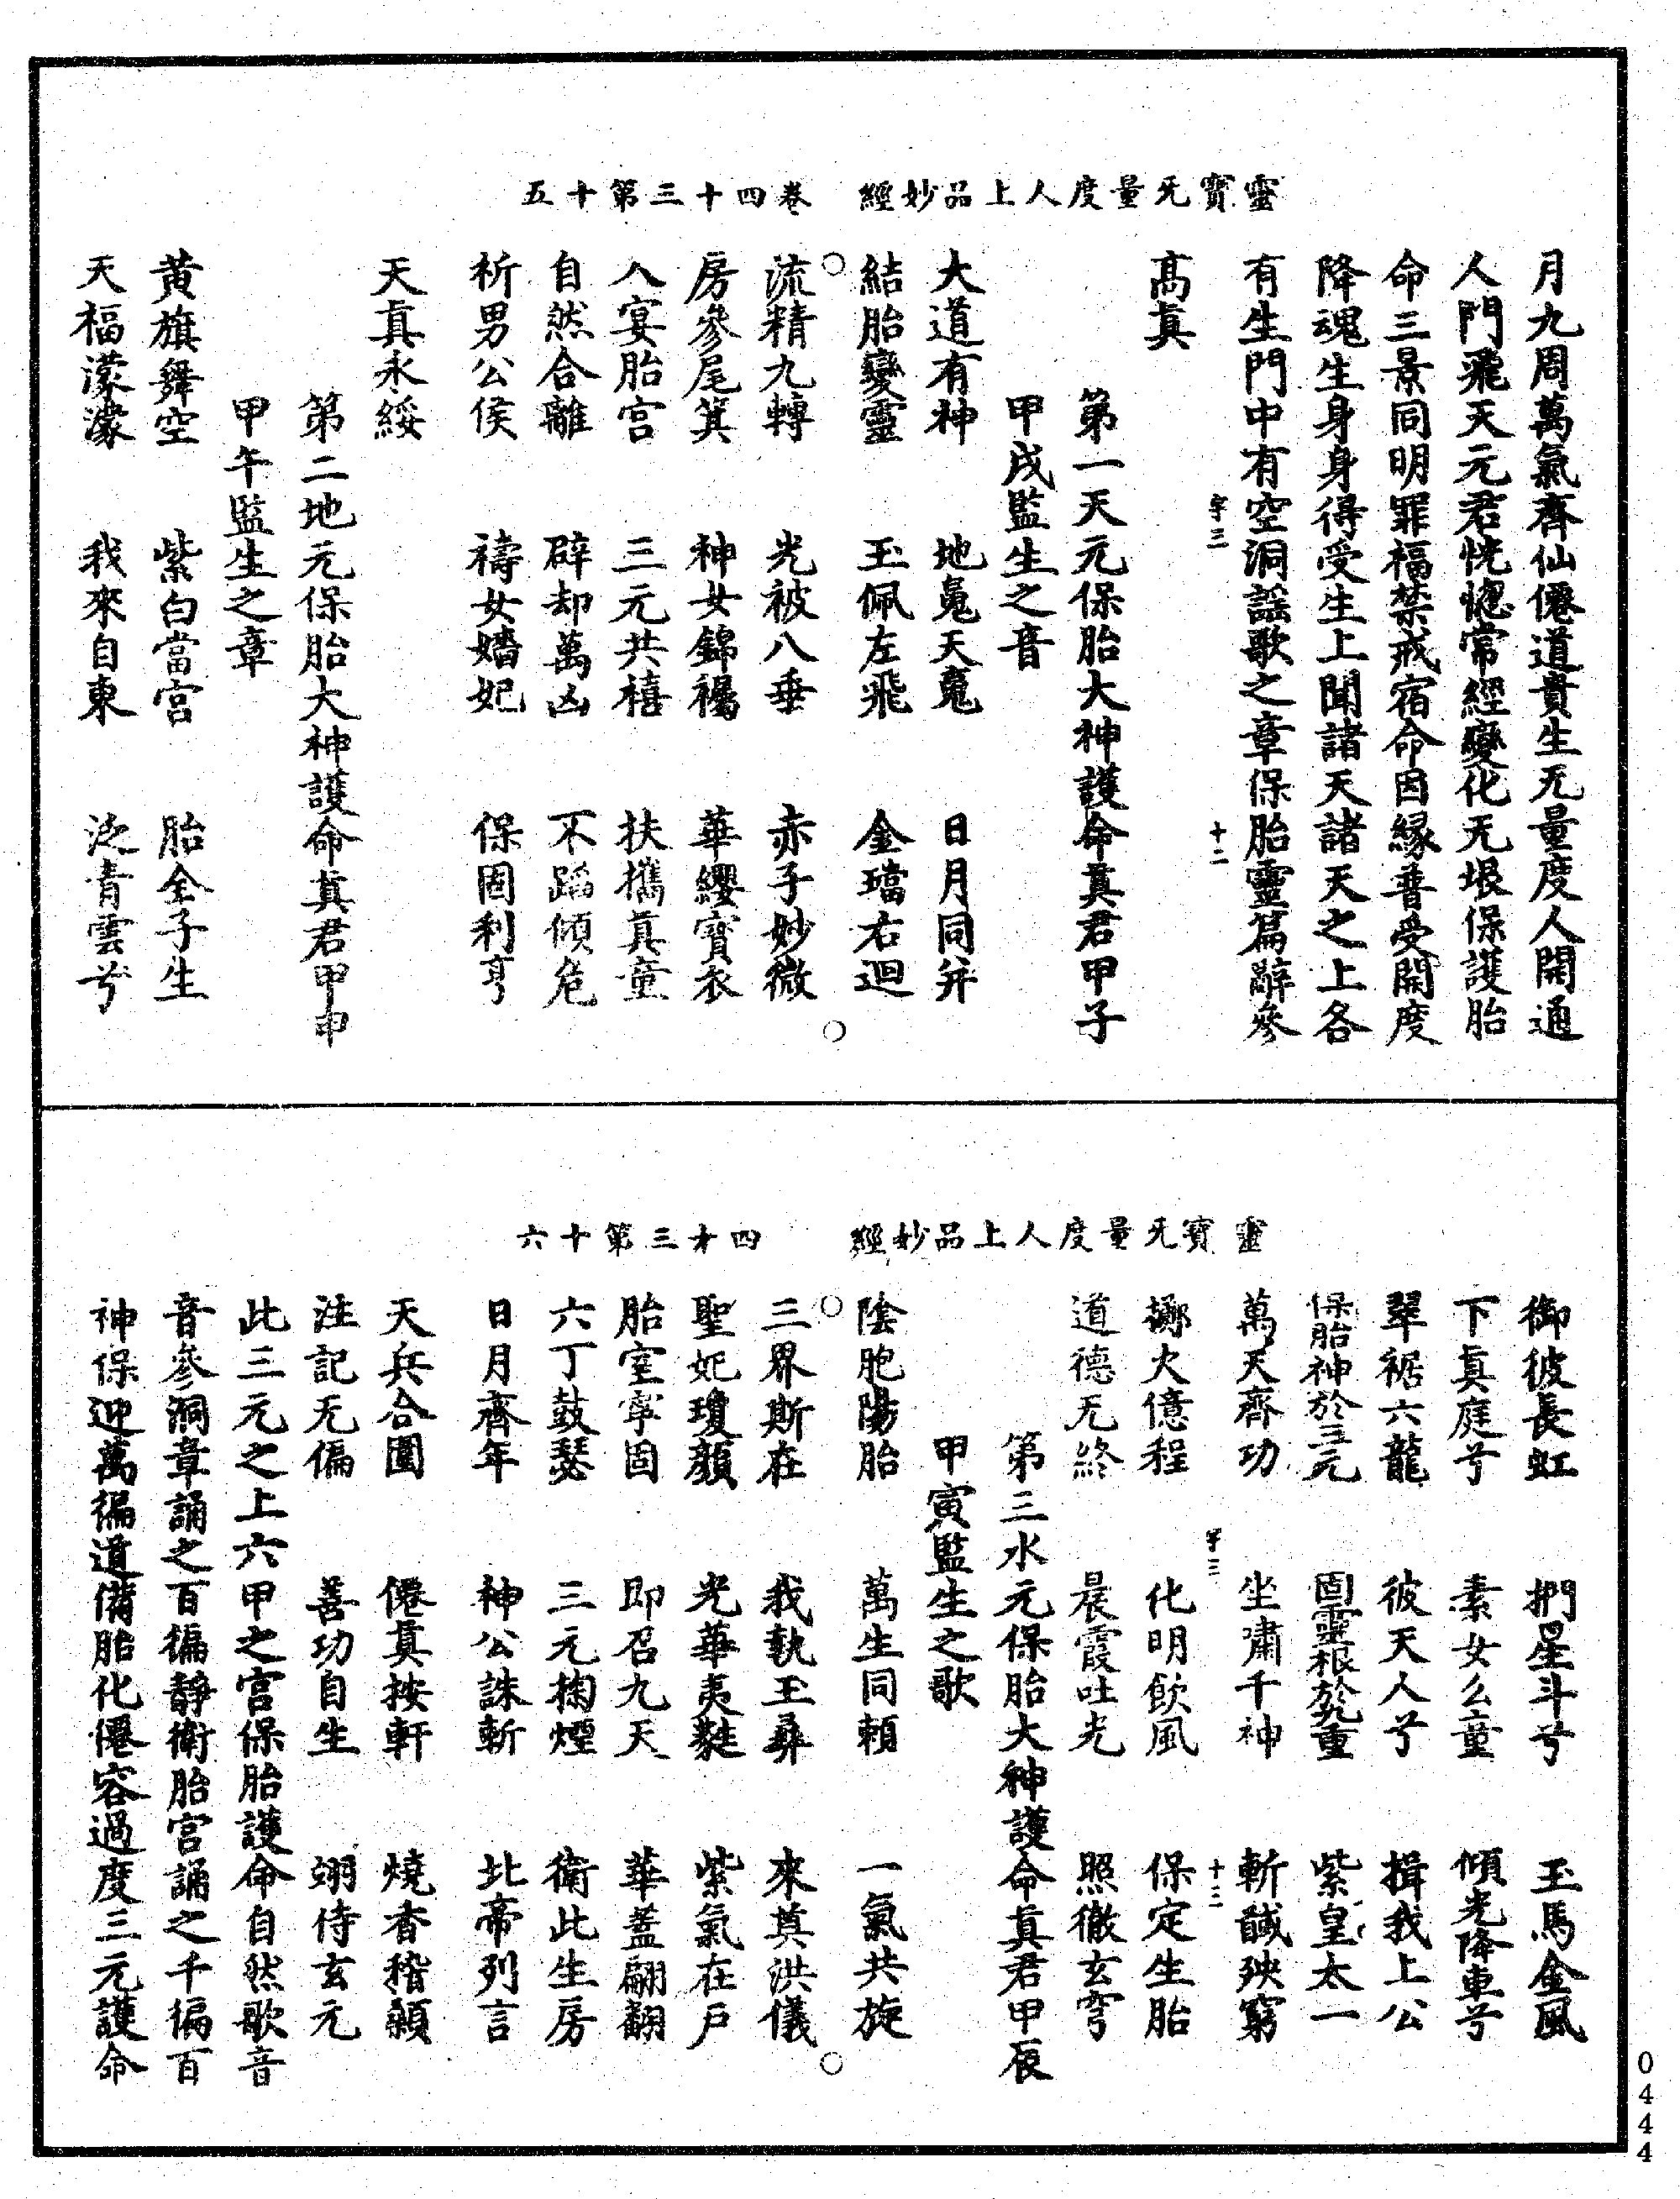 靈寶无量度人上品妙經　卷四十三第十五
月九周萬氣齊仙僊道貴生无量度人開通
人門飛天元君恍惚常經變化无垠保護胎
命三景同明罪福禁戒宿命因緣普受開度
降魂生身身得受生上聞諸天諸天之上各
有生門中有空洞謠歌之章保胎靈篇辭參
字三　十二
高眞
第一天元保胎大神護命眞君甲子
甲戌監生之音
大道有神　地䰟天䰟　日月同并
結胎變靈　玉佩左飛　金璫右迴
流精九轉　光被八垂　赤子妙微
房參尾箕　神女錦襹　華纓寶衣
入宴胎宮　三元共禧　扶攜眞童
自然合離　辟却萬凶　不蹈傾危
祈男公侯　禱女嬙妃　保固利亨
天眞永綏
第二地元保胎大神護命眞君甲申
甲午監生之章
黃旗舞空　紫白當宮　胎全子生
天福濛濛　我來自東　泛青雲兮
靈寶无量度人上品妙經　四十三第十六
御彼長虹　捫星斗兮　玉馬金風
下眞庭兮　素女么童　傾光降車兮
翠裾六龍　彼天人兮　揖我上公
保胎神於三元　固靈根於九重　紫皇太一
萬天齊功　坐嘯千神　斬馘殃窮
字三　十三
擲火億程　化明飲風　保定生胎
道德无終　晨霞吐光　照徹玄穹
第三水元保胎大神護命眞君甲辰
甲寅監生之歌
陰胞陽胎　萬生同賴　一氣共旋
三界斯在　我執玉彝　來奠洪儀
聖妃瓊顏　光華夷䴡　紫氣在戶
胎室寧固　即召九天　華蓋翩翻
六丁鼓瑟　三元掬煙　衛此生房
日月齊年　神公誅斬　北帝列言
天兵合圍　僊眞按軒　燒香稽顙
注記无偏　善功自生　翊侍玄元
此三元之上六甲之宮保胎護命自然歌音
音參洞章誦之百徧靜衛胎宮誦之千徧百
神保迎萬徧道備胎化僊容過度三元護命
0444